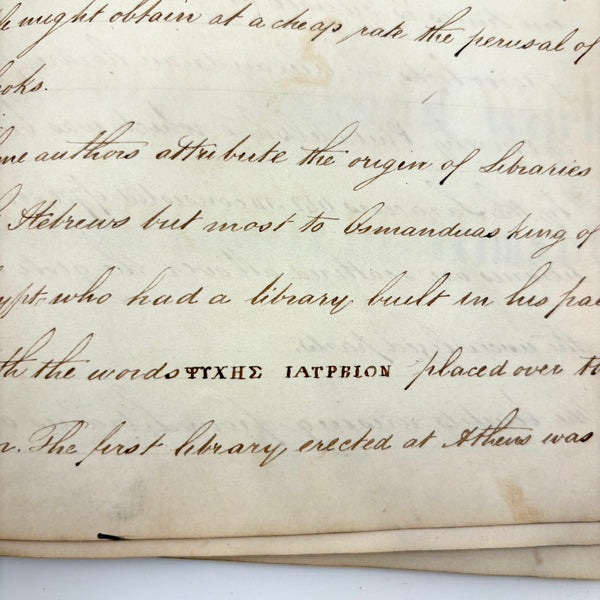 might obtain at a cheap rate the perusal of
ooks.
me authors attribute the origin of Libraries
Hebrews but most to Osmanduas king of
ypt who had a library built in his pa
th the words ΨΥΧΗΣ ΙΑΤΡΕΙΟΝ placed over t
The first library, erected at Athens was